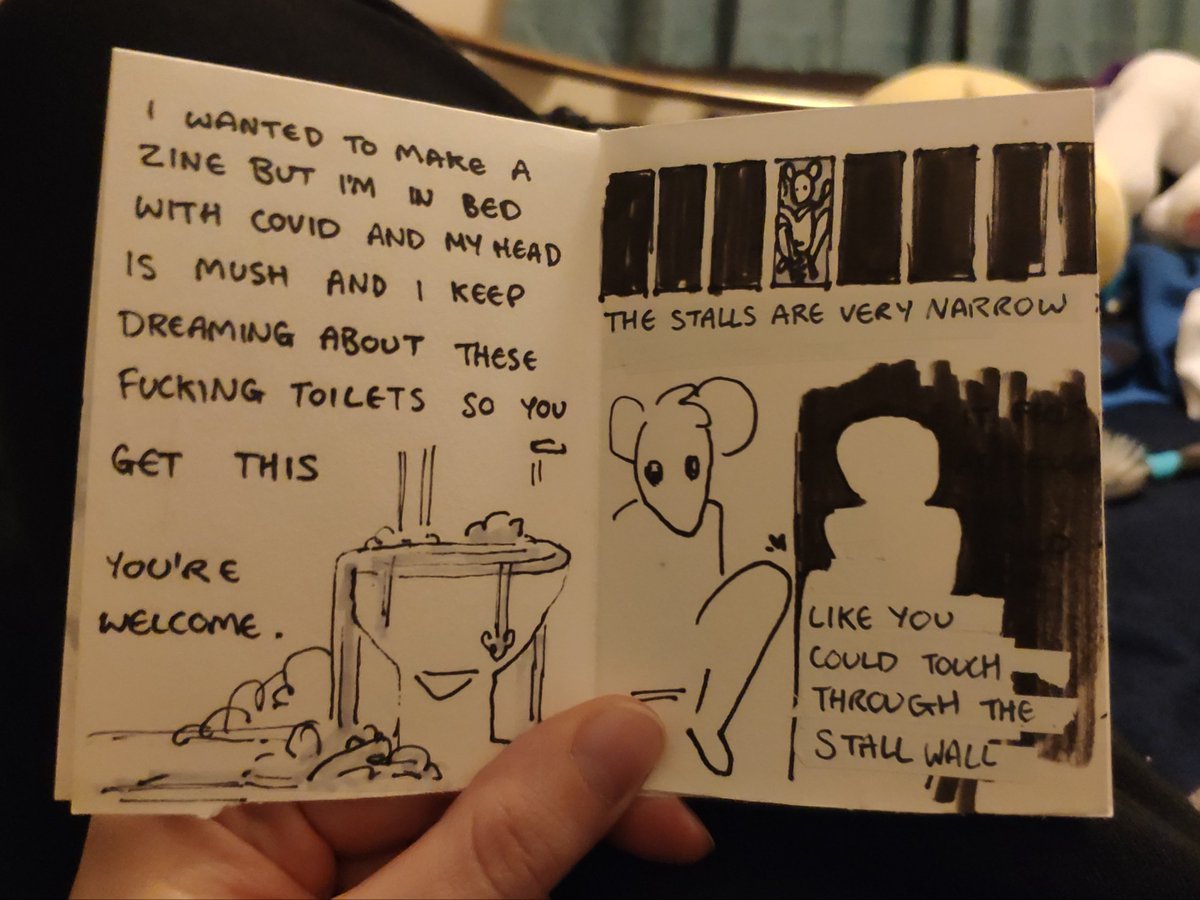 I WANTED TO MAKE A
ZINE BUT I'M IN BED
WITH COVID AND MY HEAD
IS MUSH AND I KEEP
DREAMING ABOUT THESE
FUCKING TOILETS SO YOU
GET THIS
YOU'RE
WELCOME.
THE STALLS ARE VERY NARROW
LIKE YOU
COULD TOUCH
THROUGH THE
STALL WALL